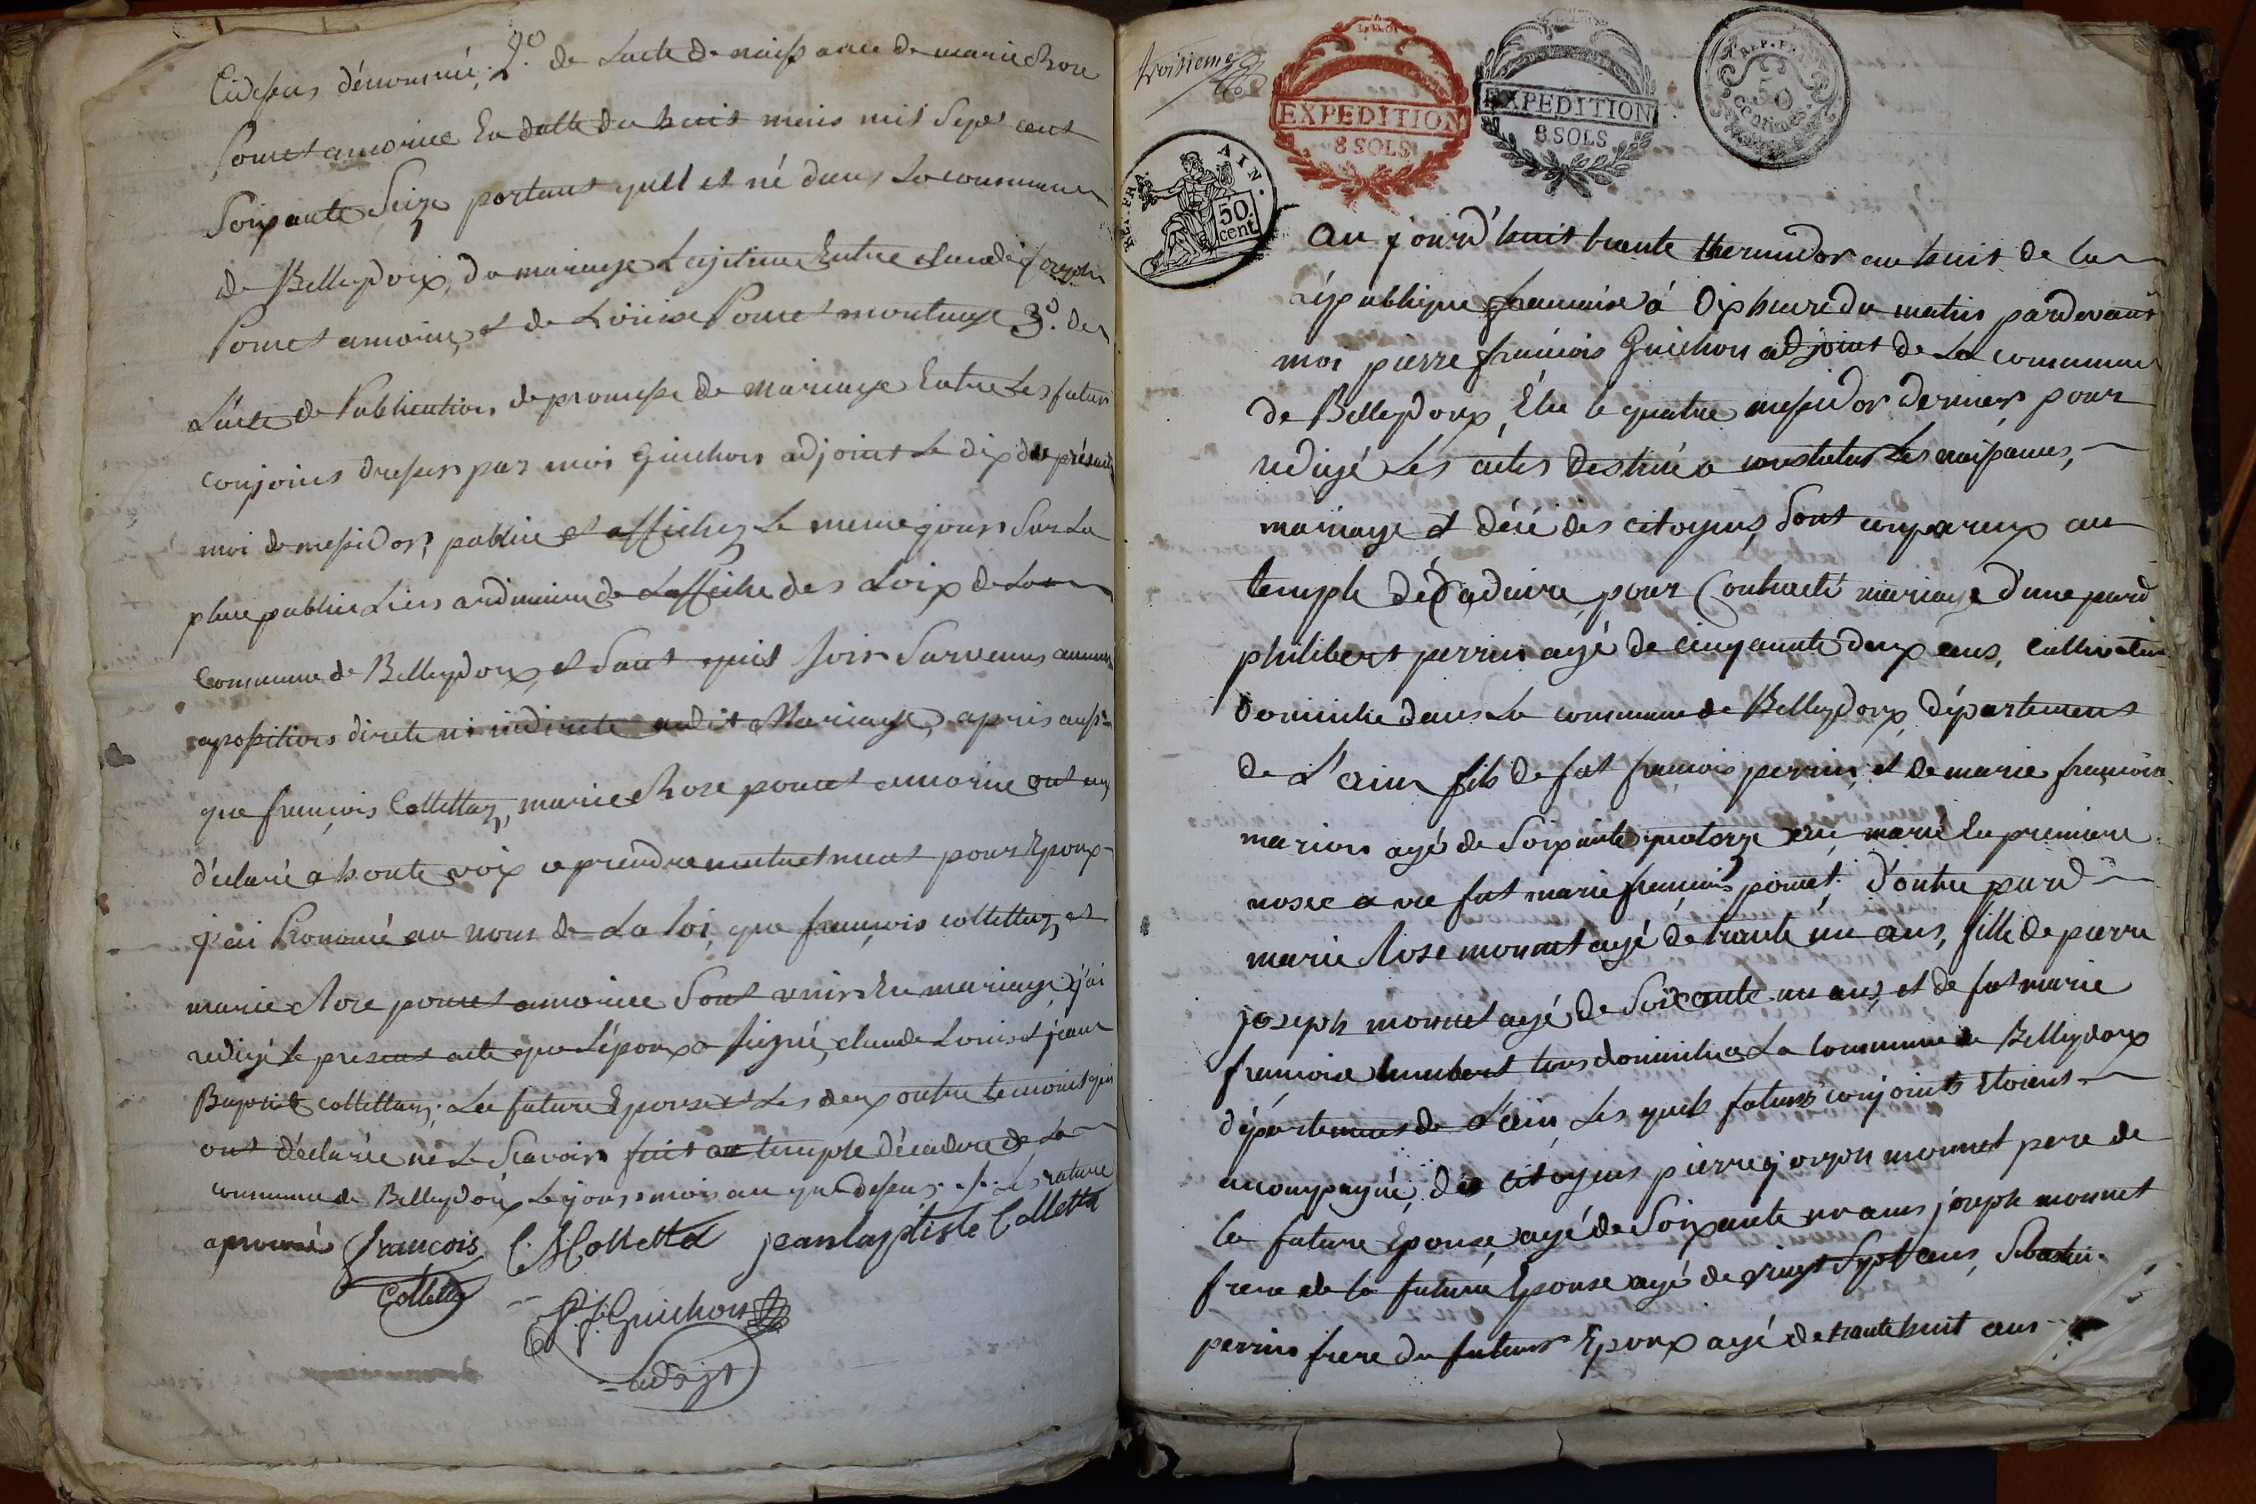 Cidesus dénommé, 2.° de Lacte de naissance de marie Rose
Poncet amorine En datte du huit mars mil Sept cent
Soixante Seize portant qu'ell est né dans La commune
de Belleydoux, du mariage Legitime Entre claude joseph
Poncet amorine, et de Louise Poncet montange 3°. de
L'acte de Publication, de promesse de Mariage Entre Les futurs
conjoins dressé par moi Guichon adjoint Le dix du présent
moi de messidor, publié et affichez Le meme jour Sur La
place public Lieu ardinaire de Laffiche des Loix de La
Commune de Belleydoux, et Sant quil Soir Survenus aucune
aposition directe ni indirecte audit Mariage, apris aussi
que françois Collettaz, marie Rose poncet amorine ont
déclaré a haute voix ce prendre mutuelment pour Epoux
j'ai Prononcé au nom de La Loi, que françois collettaz, et
marie Rose poncet amorine Sont unis En mariage, j'ai
redigé le present acte que L'époux a signé, claude Louis et jean
Baptiste collettaz; La future Epouse et Les deux outre temoins qui
ont déclarée ne Le Scavoir fait au temple décadere de La
commune de Belleydoux Le jour mois an que desus. Les rature
aprouvés françois C. L. Colletta jeanbaptiste Colletta
Colletta
P. f. Guichon
adojt
troisieme
EXPEDITION
8 SOLS
EXPEDITION
8 SOLS
REP. FRA.
50
centimes
REP. FRA. AIN.
50
cent.
Au jourd'huit trante thermidor an huit de la
république francaise á Dix heure du matin pardevant
moi pierre françois Guichon adjoint de La commune
de Belleydoux, Élu le quatre messidor dernier pour
redigé Les actes destiné a constater Les naissances,
mariage et décé des citoyens, Sont comparux au
temple décadaire, pour Contracté mariage d'une pard
philibert perrin agé de cinquante deux ans, cultivateur
domicilié dans La commune de Belleydoux département
de L'ain fils de fut françois perrin, et de marie françoise
marion agé de Soixante quatorze ans, marié En premiere
nosse a vec fut marie françoise poncet. d'outre pard
marie Rose monnet agé de trante un ans, fille de pierre
joseph monnet agé de Soixante un ans, et de fut marie
françoise humbert tous domicilié a La commune de Belleydoux
département de L'ain, Les quels futurs conjoints Etoient
acompagné, des citoyens pierre joseph monnet pere de
la future Epouse, agé de Soixante un ans, joseph monnet
frere de la future Epouse agé de vingt Sept ans, Sebastien
perrin frere du futur Epoux agé de trante huit ans